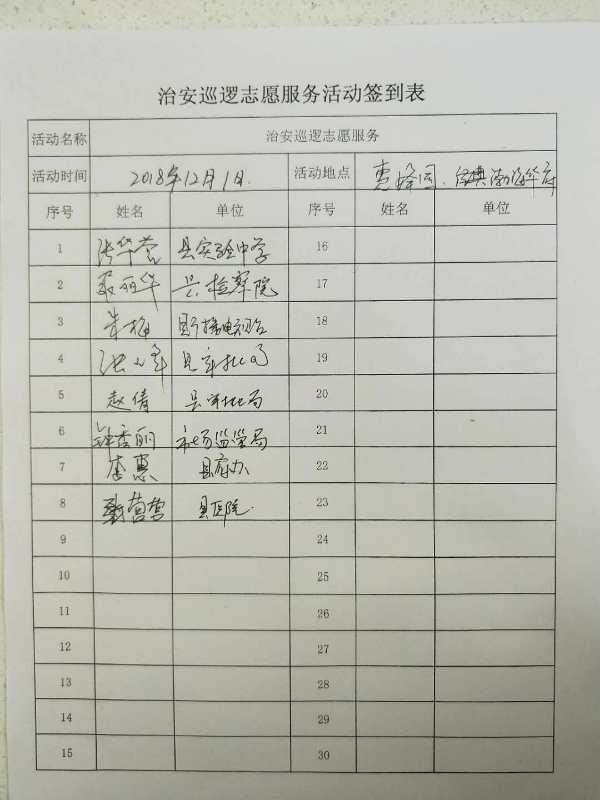 治安巡逻志愿服务活动签到表
活动名称 治安巡逻志愿服务
活动时间 2018年12月1日. 活动地点
序号 姓名 单位 序号 姓名 单位
1 县实验中学 16
2 县检察院 17
3 朱梅 县广播电视台 18
4 县审批局 19
5 赵倩 县审批局 20
6 钟秀丽 市场监管局 21
7 李惠 县府办 22
8 营营 县医院. 23
9 24
10 25
11 26
12 27
13 28
14 29
15 30